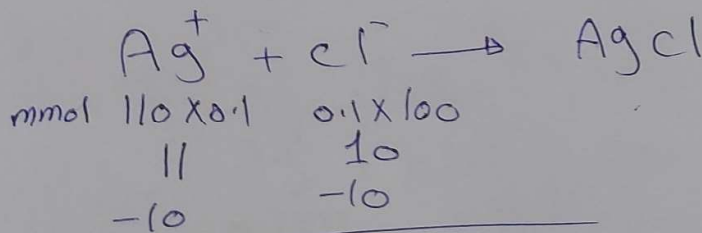 Ag⁺ + cl⁻ → AgCl
mmol 110 x0.1 0.1 x 100
11 10
-10 -10